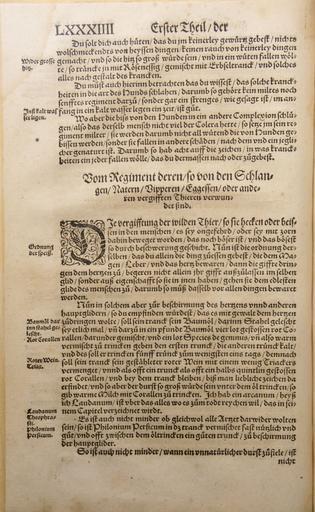 LXXXIIII Erster Theil/der
Du solt dich auch hüten/das du jm keinerley gewürtz gebest/nichts
wolschmeckends von heyssen dingen: keinen rauch von keinerley dingen
Wider grosse hitz. gemacht/und so die hitz so groß würde seyn/und in ein wüten fallen wöl-
te/so tränck jn mit Rosenessig/gemischt mit
alles nach gestalt des krancken.
Du must auch hierinn betrachten das du wissest/das solche kranck-
heiten in die art des Hunds schlahen/darumb so gehört kein miltes noch
senfftes regiment darzu/sonder gar ein strenges/wie gesagt ist/im an-
Inn kalt wasser legen. fang in ein kalt wasser legen ein zeit/ist gut.
Wo aber die biß von den Hunden in ein andere Complexion schlü-
gen/also das derselb mensch nicht viel der Colera hette/so seye jm sein re-
giment milter/sie werden darumb nicht all wütend die von Hunden ge-
bissen werden/sonder sie fallen in andere schäden/nach dem und ein jegli-
cher genaturt ist. Darumb so hab acht auff die zeichen/in was kranck-
heiten ein jeder fallen wölle/das du dermassen nach oder zügebest.
Vom Regiment deren/so von den Schlan-
gen/Natern/Vipperen/Eggessen/oder ande-
ren vergifften Thieren verwun-
det sind.
Die vergifftung der wilden Thier/so sie hecken oder beis-
sen in den menschen/es sey ungefehrd/oder sey mit zorn
dahin bewegt worden/das noch böser ist/und das böst
Ordnung der speiß. so durch beschwerung geschicht. Nun ist die ordnung der-
selben/das du allein die ding zü essen gebest/die dem Ma-
gen/Leber/und das hertz bewaren/dann die gifft dring-
gen dem hertzen zü/begeren nicht allein jhr gifft außzülassen im selben
glid/sonder auß eigenschafft so sie in jnen haben/geben sie dem edlesten
glide des menschen zü/darumb so müß dasselb vor allen dingen bewaret
werden.
Nün in solchem aber zür beschirmung des hertzens unnd anderen
hauptglidern/so du empfinden würdest/das es mit gewalt dem hertzen
Baumöl darinn stahel gelescht. zudringen wolte/soll sein tranck sein Baumöl/darinn Stahel gelescht
sey eilff mal/und darzü in ein pfundt Baumöl vier lot gestossen rot Co-
Rot Corallen. rallen/darunder gemischt/und ein lot Species de gemmis/und also warm
vermischt zü trincken geben den ersten trunck/die anderen trünck kalt/
und des soll er trincken fünff trünck zum wenigsten eins tags/demnach
Roter Wein. soll sein tranck sein gestählter roter Wein mit einem wenig Triackers
vermenget/unnd als offt ein trunck als offt ein halbs quintlin gestossen
rot Corallen/und bey dem tranck bleiben/biß man lieblicher zeichen da
erfindt/und so aber der durst so groß würde sein unter dem öltrincken/so
gib warme Milch mit Corallen zü trincken. Ich hab ein arcanum/heyß
Laudanum Theophrasti. ich Laudanum/ist über das alles wo es züm tode reychen wil/das in sei-
nem Capitel verzeichnet wirdt.
Philonium Persicum. Es ist auch nicht minder ob gleichwol alle Artzet darwider wolten
sein/so ist Philonium Persicum in dz tranck vermischet fast nützlich und
güt/und offt zwischen dem öltrincken ein güten trunck/zü beschirmung
der hauptglider.
So ist auch nicht minder/wann ein unnatürlicher durst züstele/ist
nicht